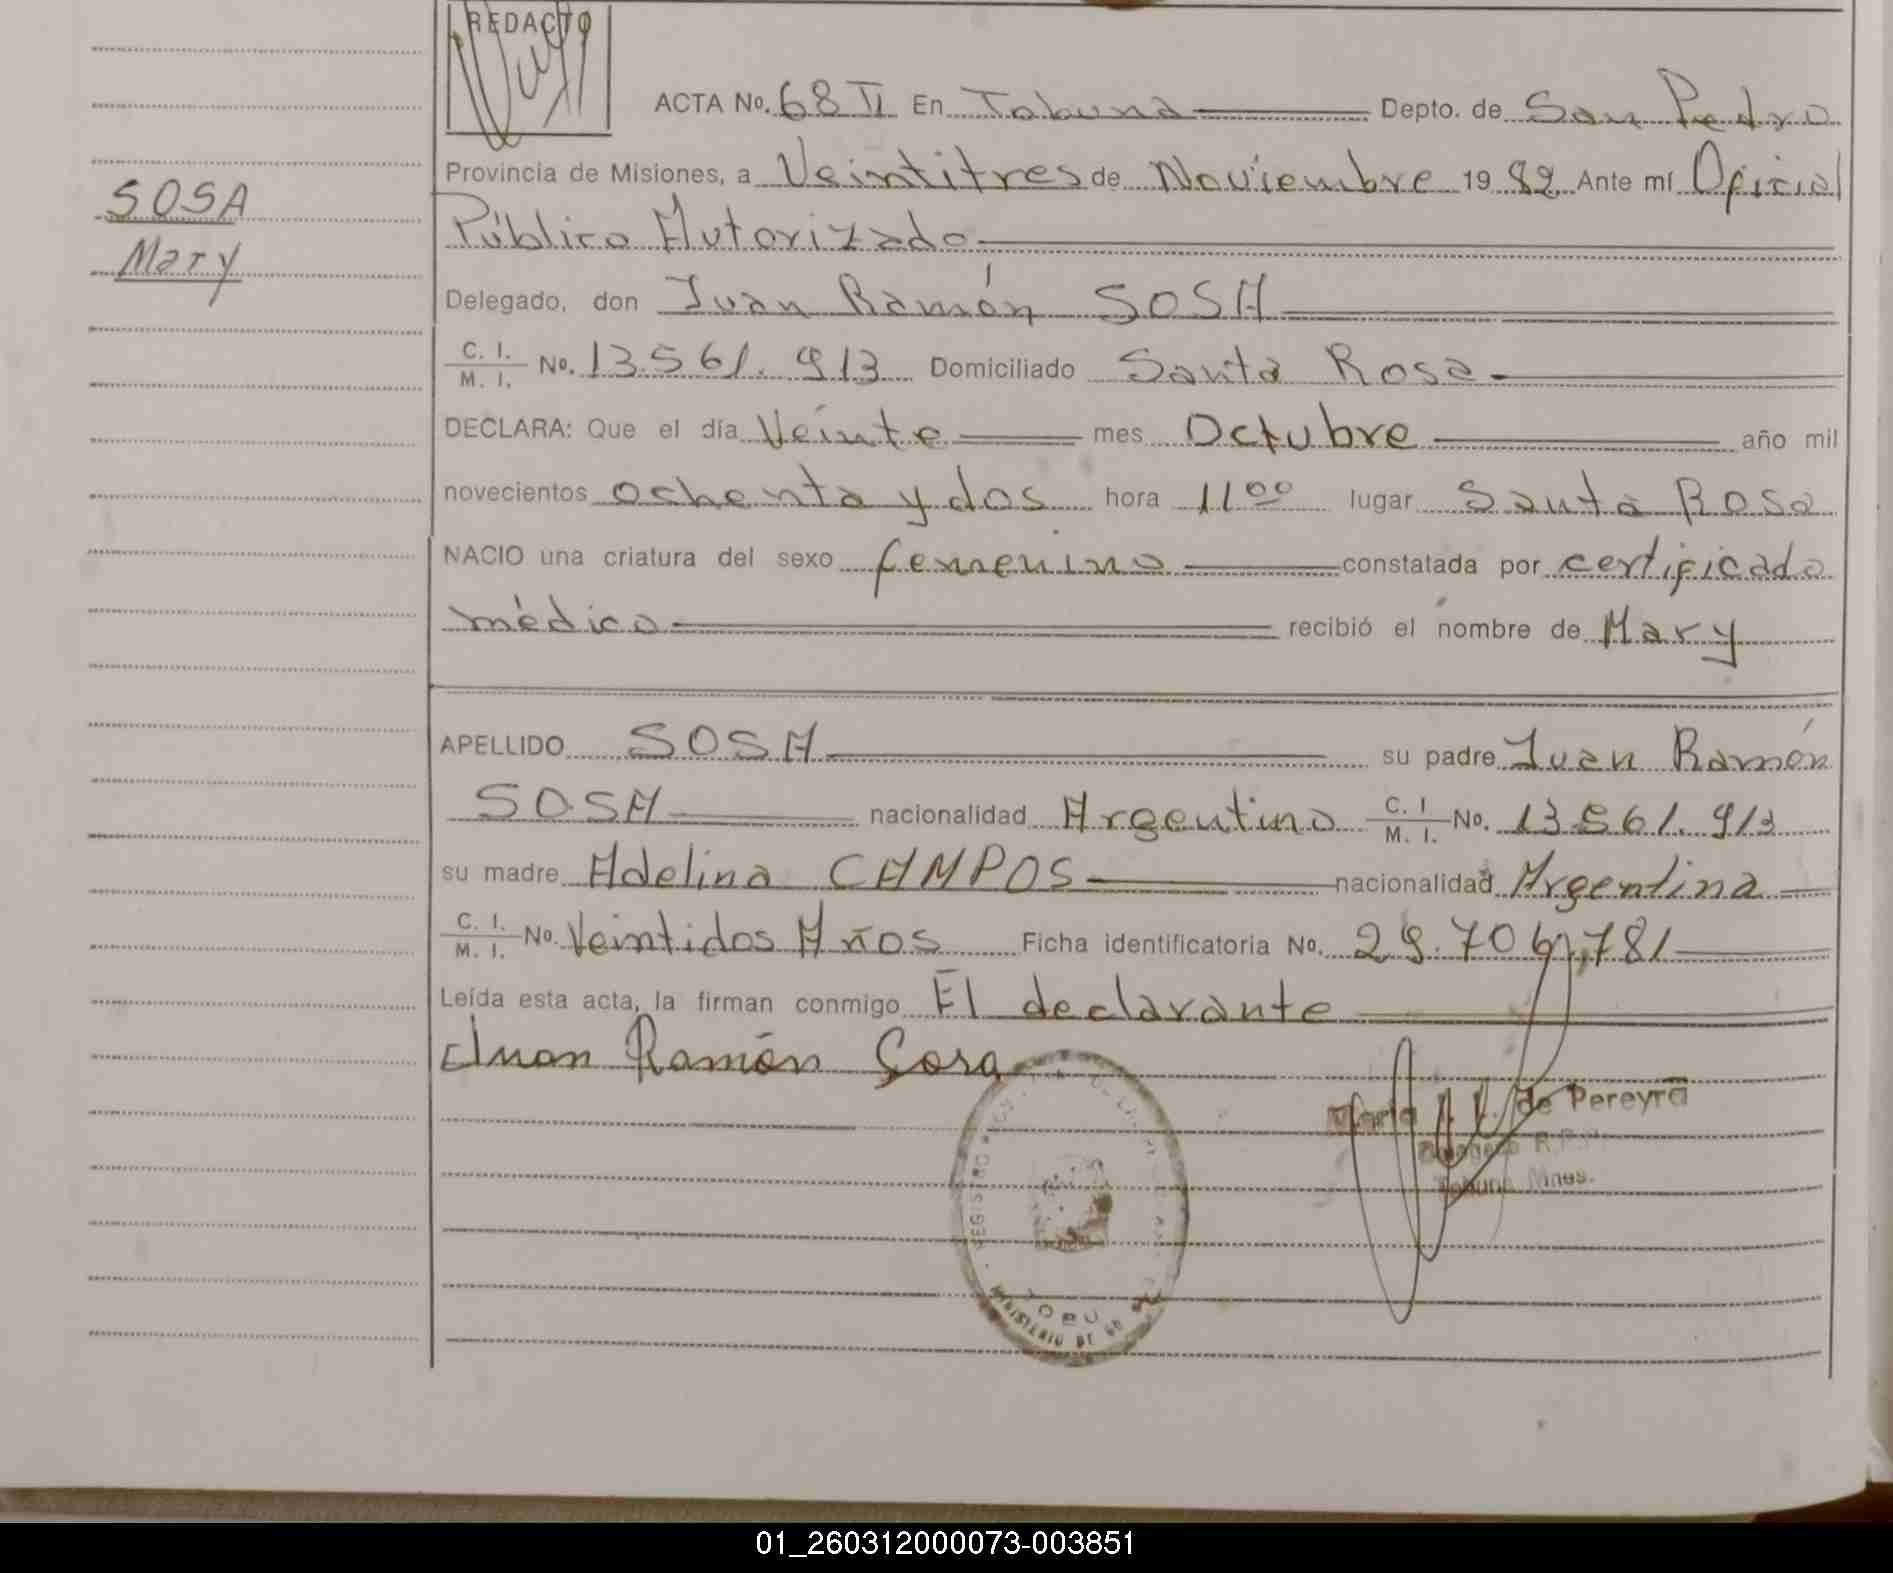 REDACTO
ACTA No. 68 II En Tobuna Depto. de San Pedro
Provincia de Misiones, a Veintitres de Noviembre 19 82 Ante mí Oficial
SOSA
Público Autorizado
Mary
Delegado, don Juan Ramón SOSA
C. I. M. I. No. 13.561.913 Domiciliado Santa Rosa
DECLARA: Que el día Veinte mes Octubre año mil
novecientos ochenta y dos hora 11 00 lugar Santa Rosa
NACIO una criatura del sexo femenino constatada por certificado
médico recibió el nombre de Mary
APELLIDO SOSA su padre Juan Ramón
SOSA nacionalidad Argentino C. I. M. I. No. 13.561.913
su madre Adelina CAMPOS nacionalidad Argentina
C. I. M. I. No. Veintidos Años Ficha identificatoria No.
Leída esta acta, la firman conmigo El declarante
Juan Ramón Sosa
de Pereyra
Tobuna Mnes.
REGISTRO
TOBU
MINISTERIO DE GO
01_260312000073-003851